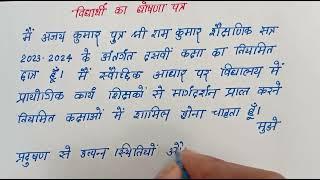 विद्यार्थी का घोषणा पत्र
मैं अजय कुमार पुत्र श्री राम कुमार शैक्षणिक सत्र
2023-2024 के अंतर्गत दसवीं कक्षा का नियमित
छात्र हूँ। मैं स्वैच्छिक आधार पर विद्यालय में
प्रायोगिक कार्य शिक्षकों से मार्गदर्शन प्राप्त करने
नियमित कक्षाओं में शामिल होना चाहता हूँ।
मुझे
प्रदुषण से उत्पन्न स्थितियों